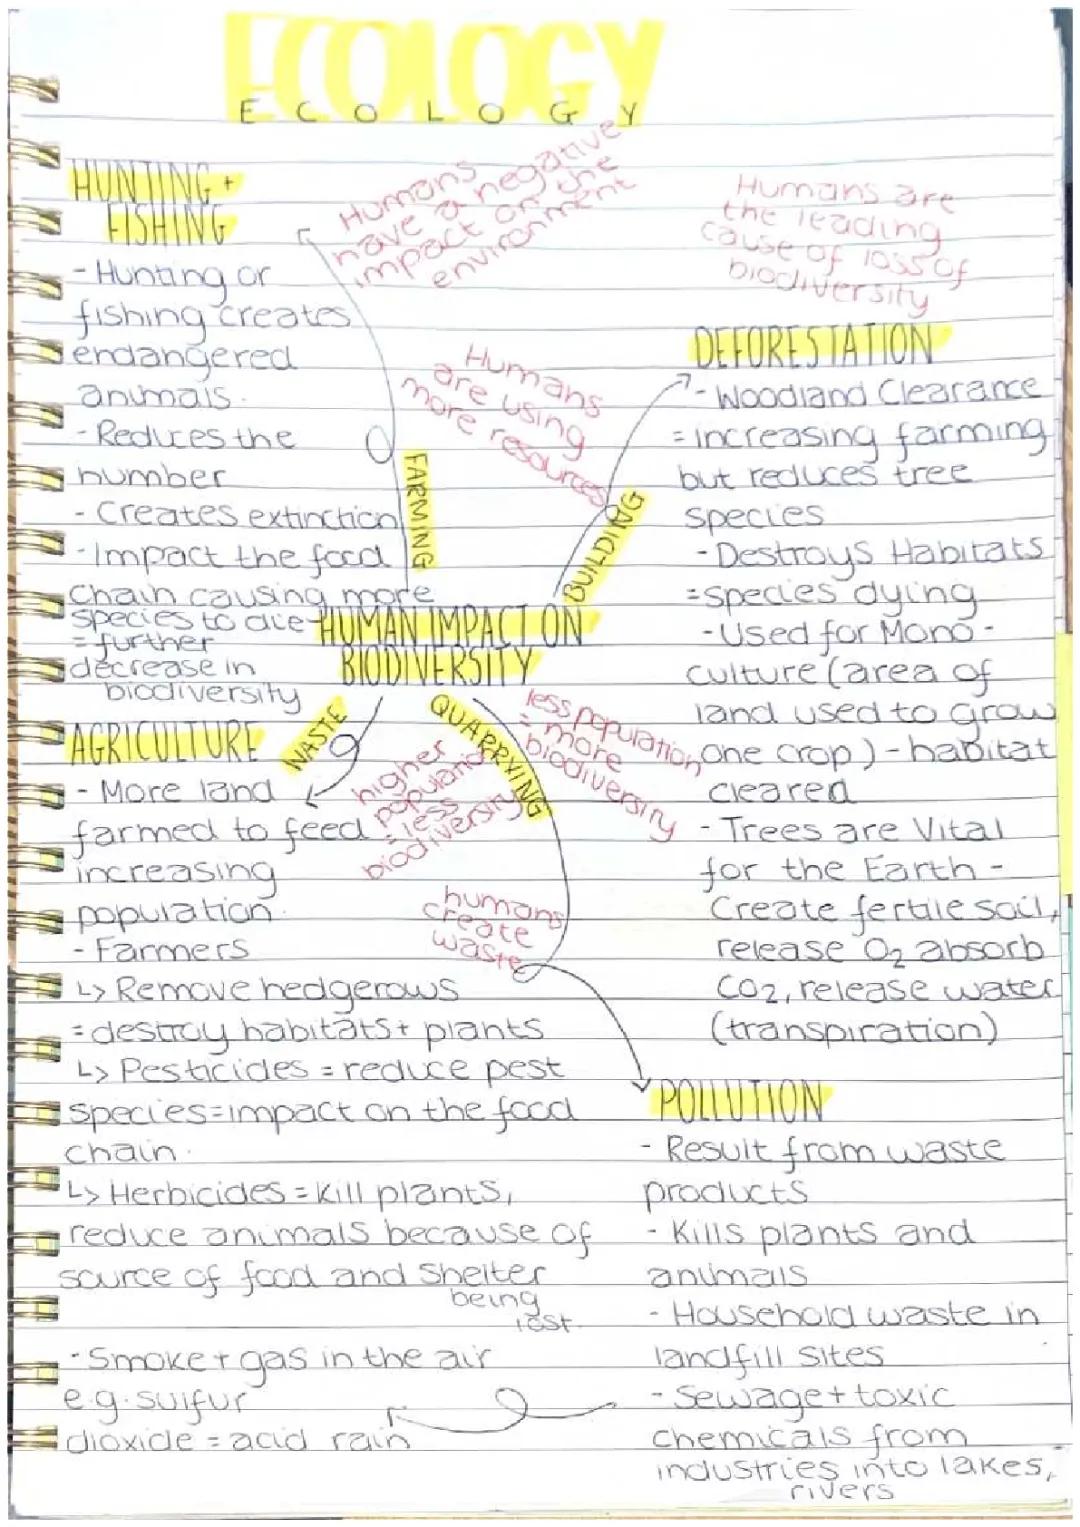 ECOLOGY
E C O L O G Y
HUNTING +
FISHING
- Hunting or
fishing creates
endangered
animals.
- Reduces the
number
- Creates extinction
- Impact the food
chain causing more
species to die
= further
decrease in
biodiversity
Humans
have a negative
impact on the
environment
Humans are
the leading
cause of loss of
biodiversity
Humans
are using
more resources
FARMING
BUILDING
HUMAN IMPACT ON
BIODIVERSITY
WASTE
QUARRYING
higher
population
= less
biodiversity
less population
= more
biodiversity
humans
create
waste
DEFORESTATION
- Woodland Clearance
= increasing farming
but reduces tree
species
- Destroys Habitats
= species dying
- Used for Mono-
culture (area of
land used to grow
one crop) - habitat
cleared
- Trees are Vital
for the Earth -
Create fertile soil,
release O₂ absorb
CO₂, release water
(transpiration)
AGRICULTURE
- More land
farmed to feed
increasing
population.
- Farmers
↳ Remove hedgerows
= destroy habitats + plants
↳ Pesticides = reduce pest
species = impact on the food
chain.
↳ Herbicides = kill plants,
reduce animals because of
source of food and shelter
being
lost.
POLLUTION
- Result from waste
products
- Kills plants and
animals
- Household waste in
landfill sites
- Sewage + toxic
chemicals from
industries into lakes,
rivers
- Smoke + gas in the air
e.g. sulfur
dioxide = acid rain